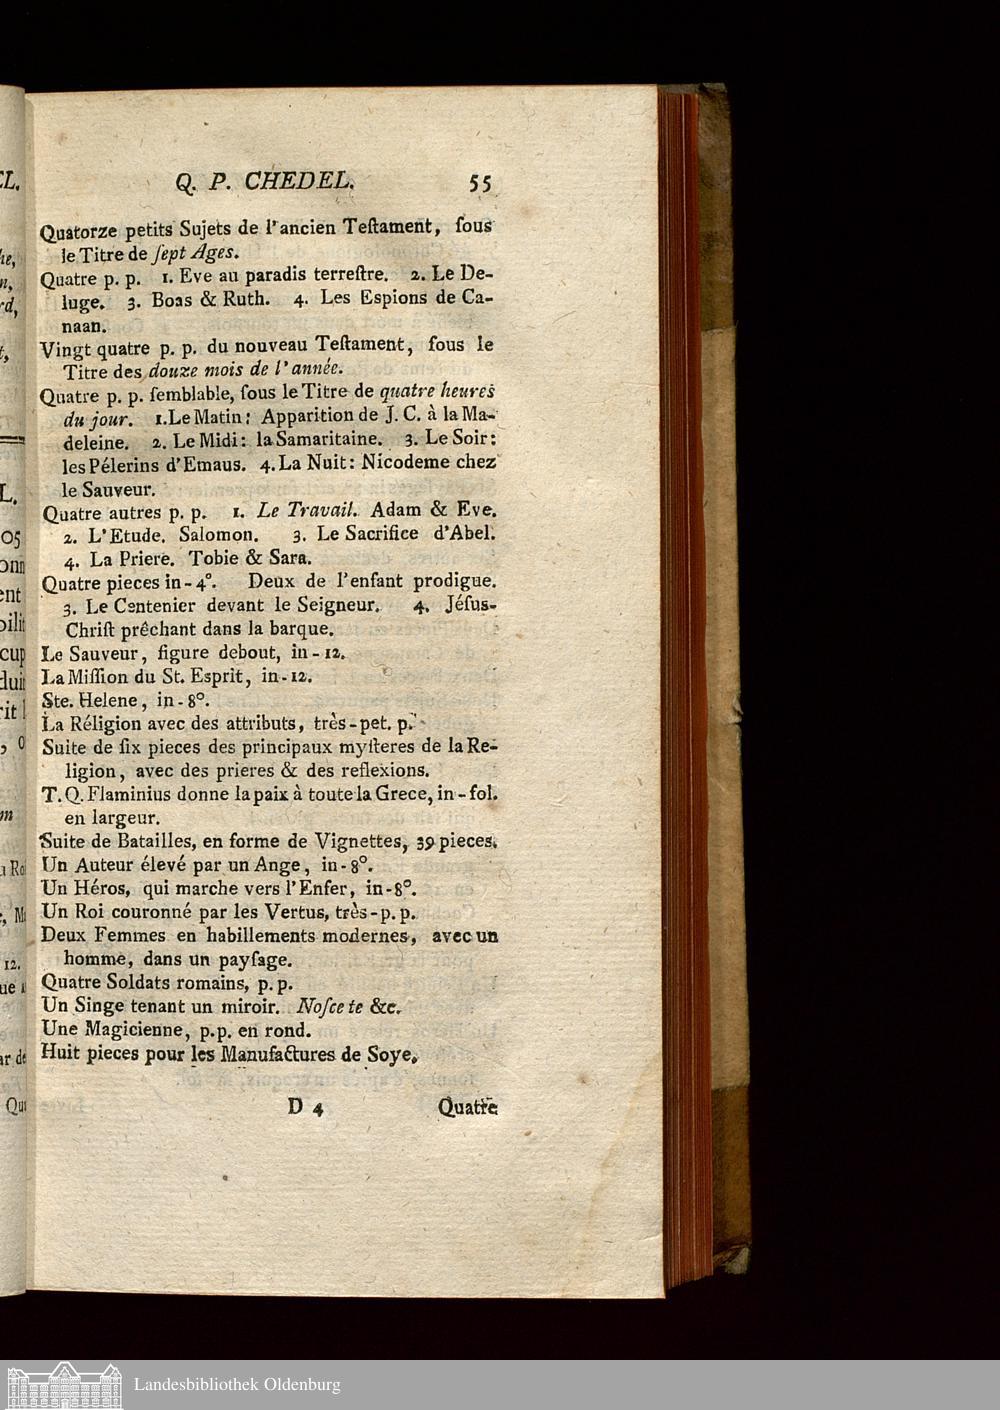 Q. P. CHEDEL. 55
Quatorze petits Sujets de l'ancien Teſtament, ſous
le Titre de ſept Ages.
Quatre p. p. 1. Eve au paradis terreſtre. 2. Le De-
luge. 3. Boas & Ruth. 4. Les Eſpions de Ca-
naan.
Vingt quatre p. p. du nouveau Teſtament, ſous le
Titre des douze mois de l'année.
Quatre p. p. ſemblable, ſous le Titre de quatre heures
du jour. 1. Le Matin: Apparition de J. C. à la Ma-
deleine. 2. Le Midi: la Samaritaine. 3. Le Soir:
les Pélerins d'Emaus. 4. La Nuit: Nicodeme chez
le Sauveur.
Quatre autres p. p. 1. Le Travail. Adam & Eve.
2. L'Etude. Salomon. 3. Le Sacrifice d'Abel.
4. La Priere. Tobie & Sara.
Quatre pieces in-4°. Deux de l'enfant prodigue.
3. Le Centenier devant le Seigneur. 4. Jéſus-
Chriſt prêchant dans la barque.
Le Sauveur, figure debout, in-12.
La Miſſion du St. Esprit, in-12.
Ste. Helene, in-8°.
La Réligion avec des attributs, très-pet. p.
Suite de ſix pieces des principaux myſteres de la Re-
ligion, avec des prieres & des reflexions.
T. Q. Flaminius donne la paix à toute la Grece, in-fol.
en largeur.
Suite de Batailles, en forme de Vignettes, 39 pieces.
Un Auteur élevé par un Ange, in-8°.
Un Héros, qui marche vers l'Enfer, in-8°.
Un Roi couronné par les Vertus, très-p. p.
Deux Femmes en habillements modernes, avec un
homme, dans un payſage.
Quatre Soldats romains, p. p.
Un Singe tenant un miroir. Noſce te &c.
Une Magicienne, p. p. en rond.
Huit pieces pour les Manufactures de Soye.
D 4 Quatre
Landesbibliothek Oldenburg